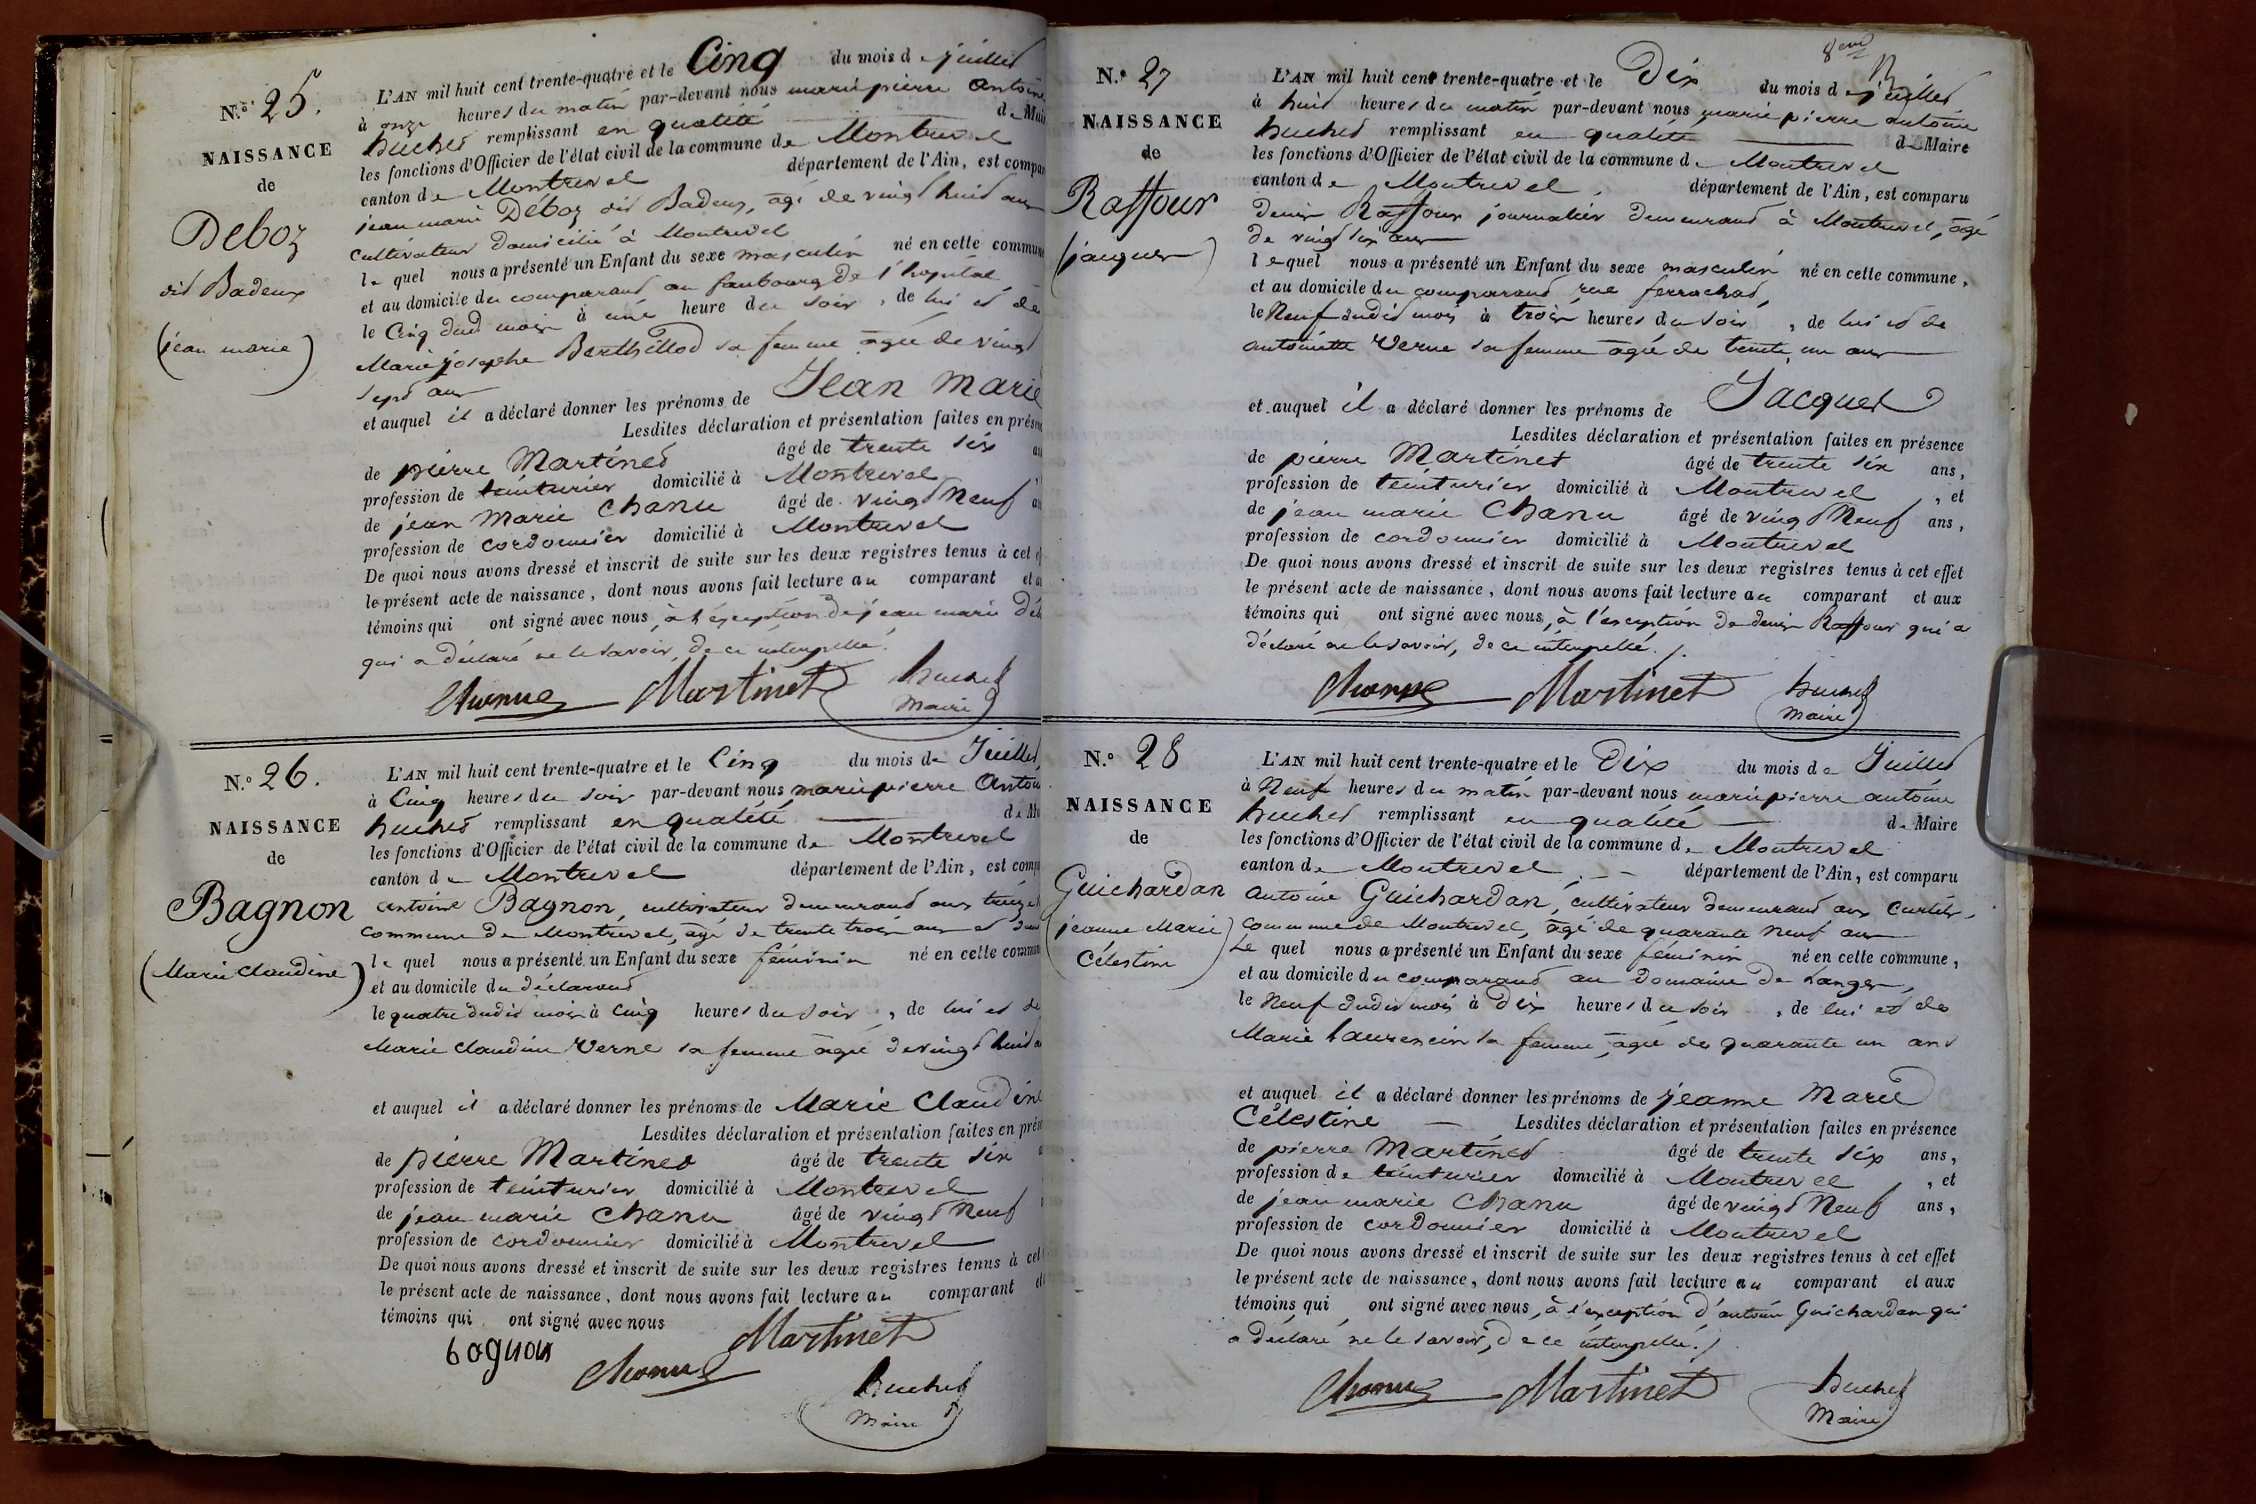 N.º 25.
NAISSANCE
de
Deboz
dit Badoux
(jean marie)
L'AN mil huit cent trente-quatre et le Cinq du mois de juillet
à onze heures du matin par-devant nous marie pierre Antoine
huchet remplissant en qualité de Mai
les fonctions d'Officier de l'état civil de la commune de Montrevel
canton de Montrevel département de l'Ain, est compar
jean marie Déboz dit Badoux, agé de vingt huit ans
cultivateur domicilié à Montrevel
lequel nous a présenté un Enfant du sexe masculin né en cette commune
et au domicile du comparant au faubourg de l'hopital
le Cinq dud mois à une heure du soir, de lui et de
Marie josephe Berthillod sa femme agée de vingt
sept ans
et auquel il a déclaré donner les prénoms de Jean Marie
Lesdites déclaration et présentation faites en présen
de pierre Martinet âgé de trente six
profession de teinturier domicilié à Montrevel
de jean Marie Chanu âgé de vingt Neuf
profession de cordonnier domicilié à Montrevel
De quoi nous avons dressé et inscrit de suite sur les deux registres tenus à cet
le présent acte de naissance, dont nous avons fait lecture au comparant et
témoins qui ont signé avec nous, à l'exception de jean marie Déb
qui a déclaré ne le savoir, de ce interpellé.
Chanu Martinet huchet
maire
N.º 26.
NAISSANCE
de
Bagnon
(Marie Claudine)
L'AN mil huit cent trente-quatre et le Cinq du mois de Juillet,
à Cinq heures du soir par-devant nous marie pierre Antoin
huchet remplissant en qualité de M
les fonctions d'Officier de l'état civil de la commune de Montrevel
canton de Montrevel département de l'Ain, est comp
antoine Bagnon, cultivateur demeurant aux
commune de Montrevel, agé de trente trois ans et
lequel nous a présenté un Enfant du sexe féminin né en cette commun
et au domicile du déclarant
le quatre dudit mois à Cinq heures du soir, de lui et de
Marie Claudine Verne sa femme agée de vingt huit
et auquel il a déclaré donner les prénoms de Marie Claudine
Lesdites déclaration et présentation faites en prés
de pierre Martinet âgé de trente six
profession de teinturier domicilié à Montrevel
de jean marie Chanu âgé de vingt Neuf
profession de cordonnier domicilié à Montrevel
De quoi nous avons dressé et inscrit de suite sur les deux registres tenus à cet
le présent acte de naissance, dont nous avons fait lecture au comparant et
témoins qui ont signé avec nous
bagnon Chanu Martinet
huchet
Maire
8eme
N.º 27
NAISSANCE
de
Raffour
(jacques)
L'AN mil huit cent trente-quatre et le Dix du mois de juillet
à huit heures du matin par-devant nous marie pierre antoine
huchet remplissant en qualité de Maire
les fonctions d'Officier de l'état civil de la commune de Montrevel
canton de Montrevel, département de l'Ain, est comparu
denis Raffour journalier demeurant à Montrevel, agé
de vingt six ans
lequel nous a présenté un Enfant du sexe masculin né en cette commune,
et au domicile du comparant rue ferrachat,
le Neuf dudit mois à trois heures du soir, de lui et de
antoinette Verne sa femme agée de trente un ans
et auquel il a déclaré donner les prénoms de Jacques
Lesdites déclaration et présentation faites en présence
de pierre Martinet âgé de trente six ans,
profession de teinturier domicilié à Montrevel, et
de jean marie Chanu âgé de vingt Neuf ans,
profession de cordonnier domicilié à Montrevel
De quoi nous avons dressé et inscrit de suite sur les deux registres tenus à cet effet
le présent acte de naissance, dont nous avons fait lecture au comparant et aux
témoins qui ont signé avec nous, à l'exception de denis Raffour qui a
déclaré ne le savoir, de ce interpellé.
Chanu Martinet huchet
maire
N.º 28
NAISSANCE
de
Guichardan
(jeanne Marie
Célestine)
L'AN mil huit cent trente-quatre et le Dix du mois de Juillet
à Neuf heures du matin par-devant nous marie pierre antoine
huchet remplissant en qualité de Maire
les fonctions d'Officier de l'état civil de la commune de Montrevel
canton de Montrevel département de l'Ain, est comparu
antoine Guichardan, cultivateur demeurant aux Curtils,
commune de Montrevel, agé de quarante neuf ans
Lequel nous a présenté un Enfant du sexe féminin né en cette commune,
et au domicile du comparant au Domaine de Langes,
le Neuf dudit mois à Dix heures du soir, de lui et de
Marie Laurencin sa femme, agée de quarante un ans
et auquel il a déclaré donner les prénoms de jeanne Marie
Célestine Lesdites déclaration et présentation faites en présence
de pierre Martinet âgé de trente six ans,
profession de teinturier domicilié à Montrevel, et
de jean marie Chanu âgé de vingt Neuf ans,
profession de cordonnier domicilié à Montrevel
De quoi nous avons dressé et inscrit de suite sur les deux registres tenus à cet effet
le présent acte de naissance, dont nous avons fait lecture au comparant et aux
témoins qui ont signé avec nous, à l'exception d'antoine Guichardan qui
a déclaré ne le savoir, de ce interpellé.
Chanu Martinet huchet
Maire